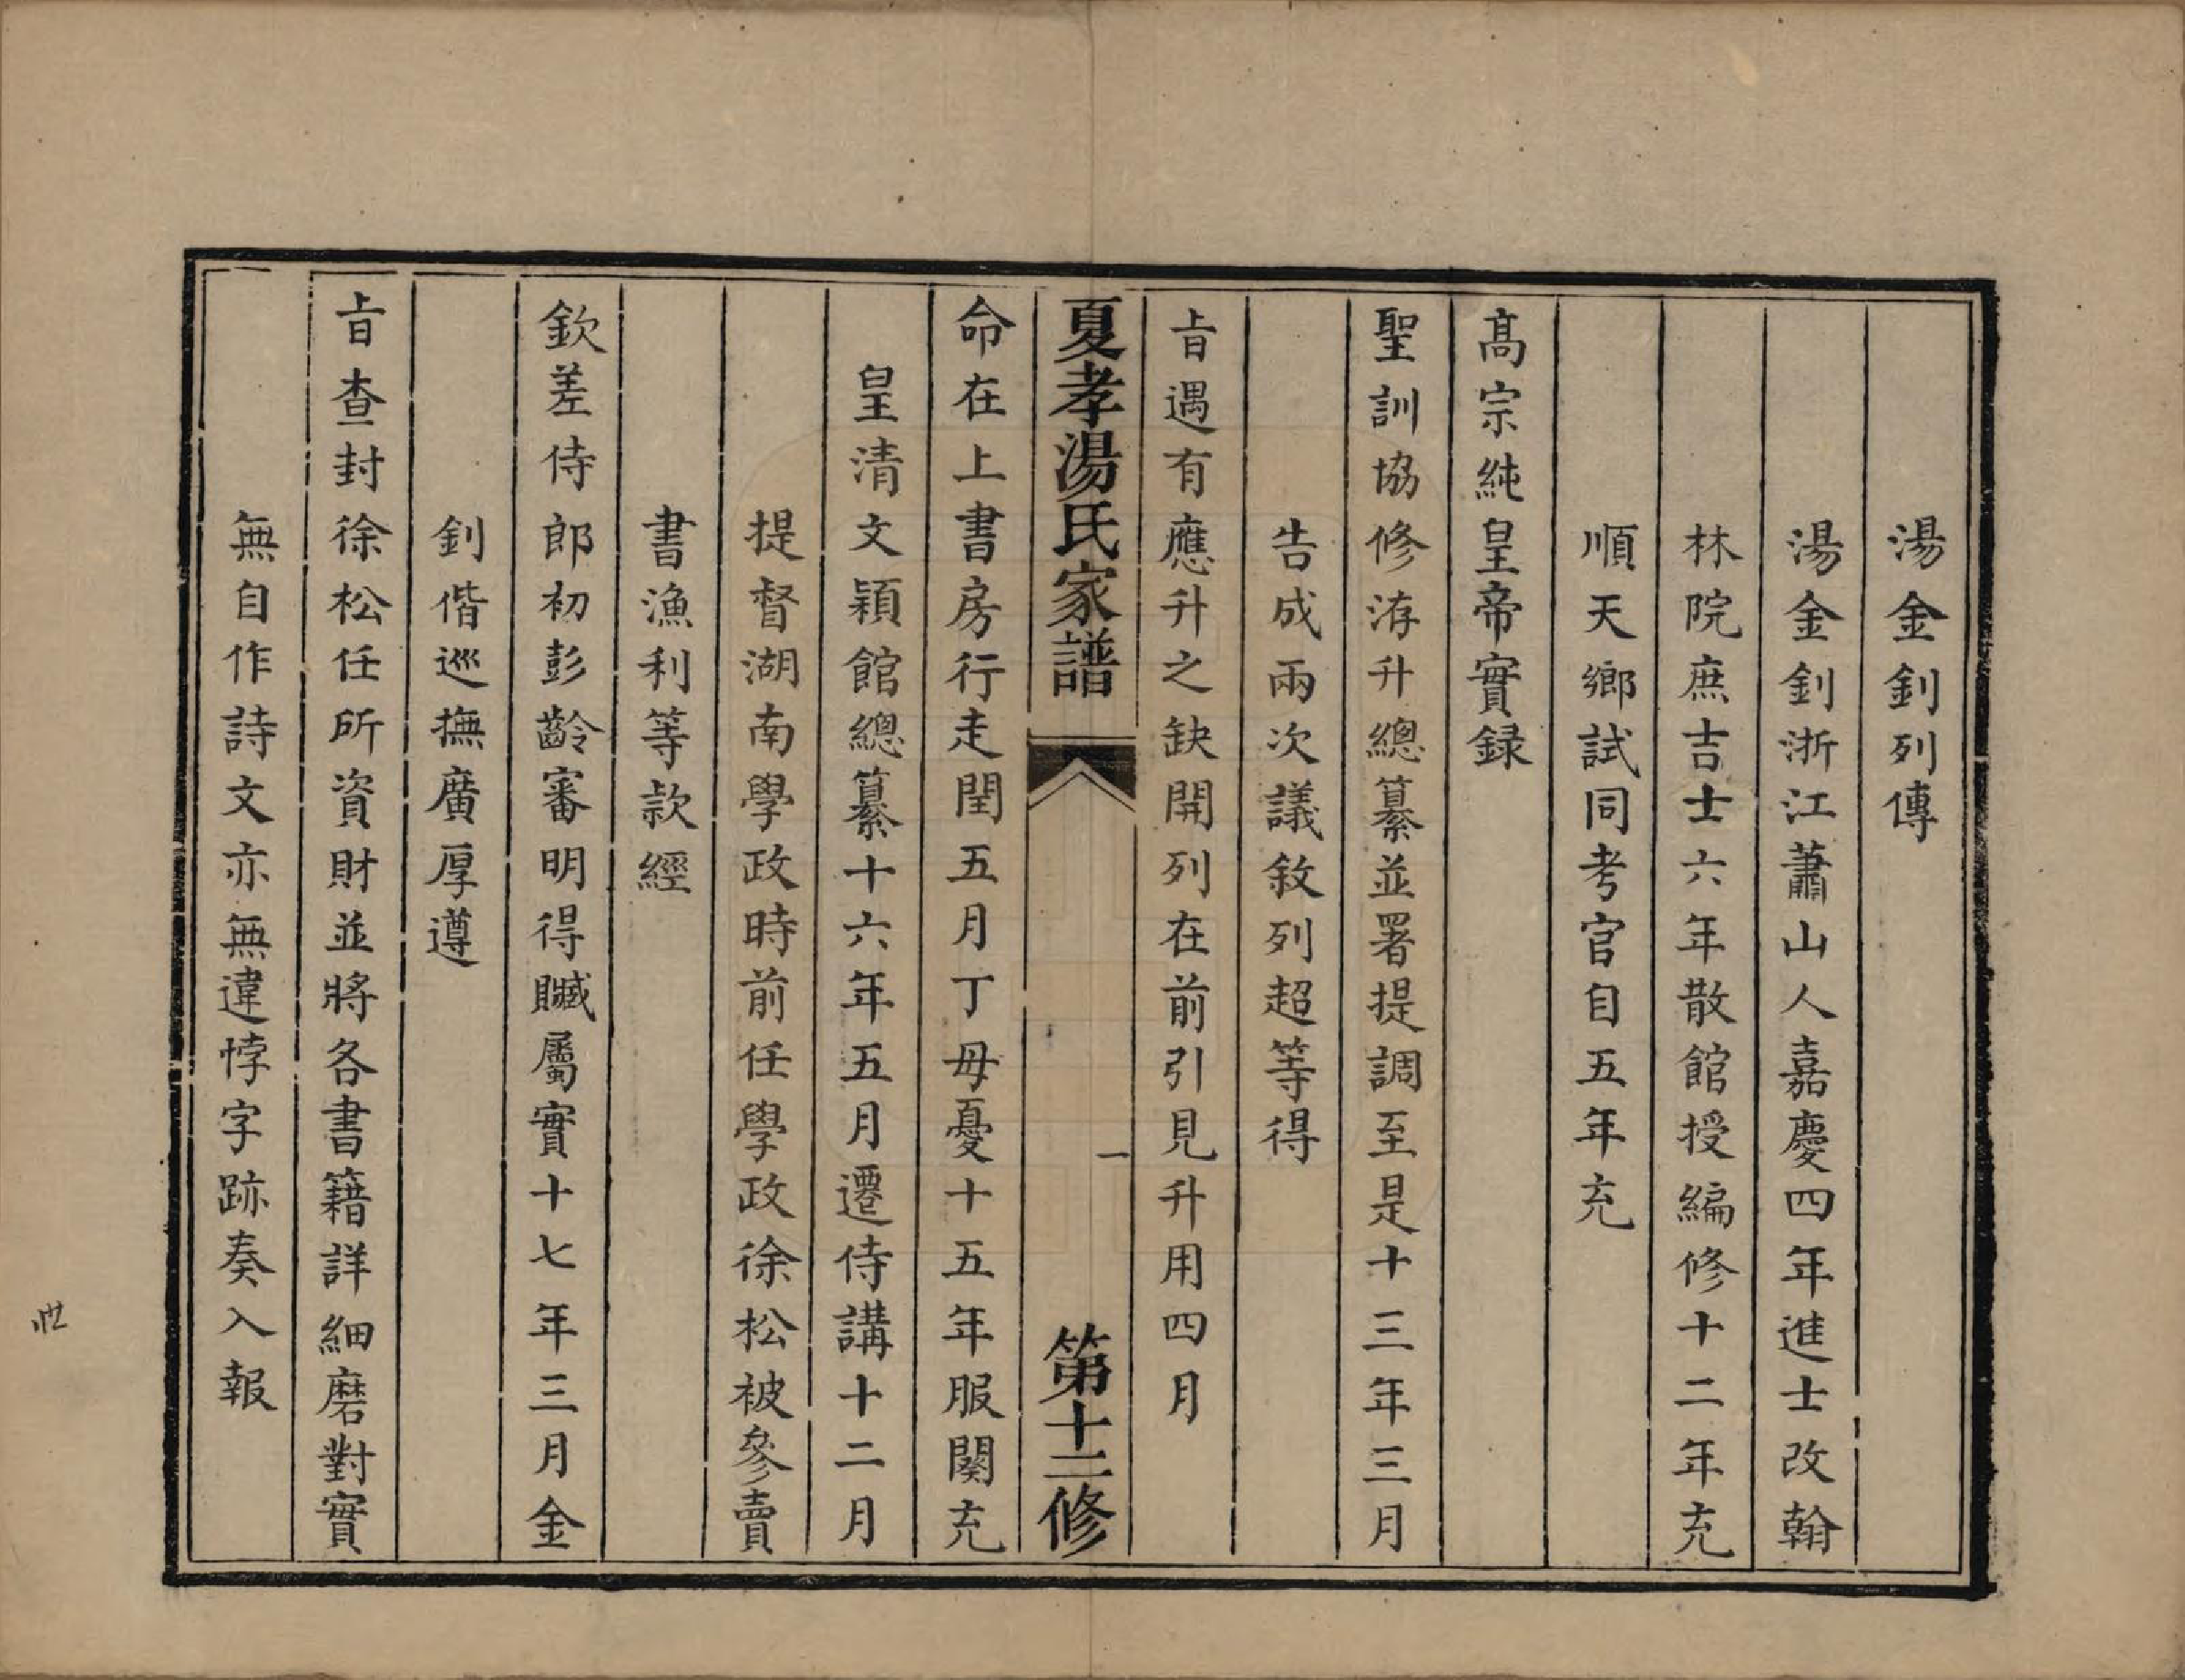 湯金釗列傳
湯金釗浙江蕭山人嘉慶四年進士改翰
林院庶吉士六年散館授編修十二年充
順天鄉試同考官自五年充
髙宗純皇帝實録
聖訓協修洊升總纂並署提調至是十三年三月
告成兩次議敘列超等得
旨遇有應升之缺開列在前引見升用四月
夏孝湯氏家譜 一 第十二修
命在上書房行走閏五月丁母憂十五年服闋充
皇清文穎館總纂十六年五月遷侍講十二月
提督湖南學政時前任學政徐松被參賣
書漁利等款經
欽差侍郎初彭齡審明得贓屬實十七年三月金
釗偕巡撫廣厚遵
旨查封徐松任所資財並將各書籍詳細磨對實
無自作詩文亦無違悖字跡奏入報